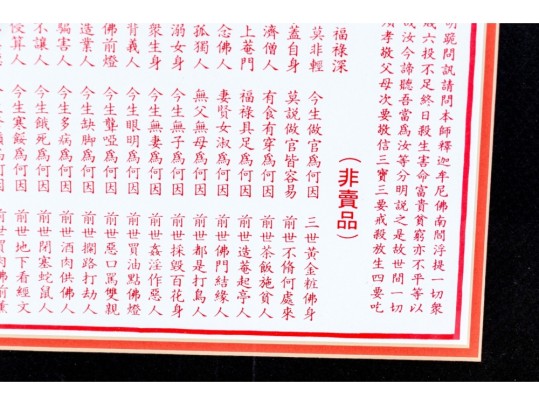 跪問訊請問本師釋迦牟尼佛南閻浮提一切衆
賤六投不足終日殺生害命富貴貧窮亦不平等以
故汝今諦聽吾當爲汝等分明說之是故世間一切
須孝敬父母次要敬信三寶三要戒殺放生四要吃
（非賣品）
福祿深
莫非輕 今生做官爲何因 三世黃金粧佛身
蓋自身 莫說做官皆容易 前世不脩何處來
濟僧人 有食有穿爲何因 前世茶飯施貧人
上菴門 福祿具足爲何因 前世造菴起亭人
念佛人 妻賢女淑爲何因 前世佛門結緣人
孤獨人 無父無母爲何因 前世都是打鳥人
溺女身 今生無子爲何因 前世採毀百花身
衆生身 今生無妻爲何因 前世姦淫作惡人
背義人 今生眼明爲何因 前世買油點佛燈
佛前燈 今生聾啞爲何因 前世惡口罵雙親
造業人 今生缺脚爲何因 前世攔路打劫人
騙害人 今生多病爲何因 前世酒肉供佛人
不讓人 今生餓死爲何因 前世閉塞蛇鼠人
算人 今生寒餒爲何因 前世地下看經文